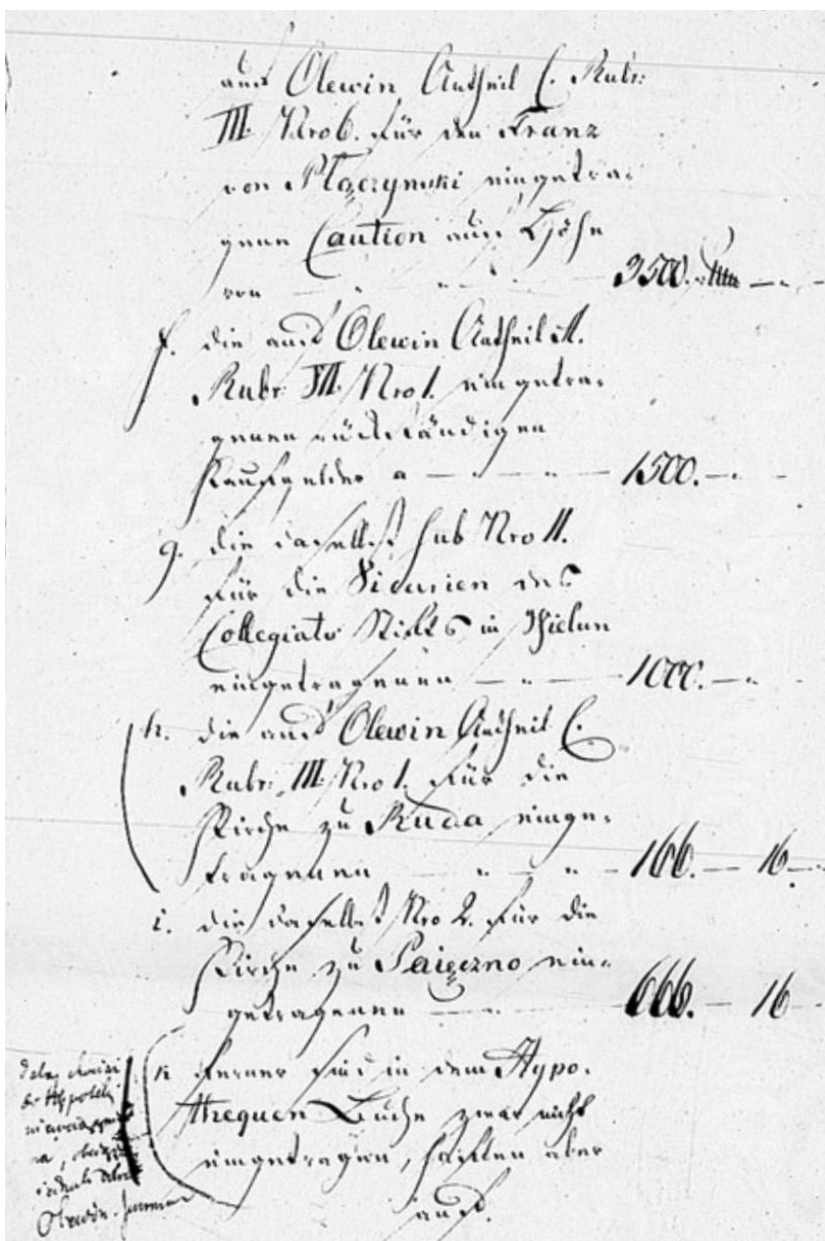 auf Olewin Antheil C. Rubr:
III. Nro 6. für den Franz
von Płaczynski eingetra-
gene Caution auf Höhe
von 3500.
f. die auf Olewin Antheil A.
Rubr. III. Nro 1. eingetra-
genen rückständigen
Kaufgelder a 1500.
g. die daselbst sub Nro II.
für die Vicarien des
Collegiats Stifts in Wielun
eingetragenen 1000.
h. die auf Olewin Antheil C.
Rubr: III. Nro 1. für die
Kirche zu Ruda einge-
tragenen 166. — 16.
i. die daselbst Nro 2. für die
Kirche zu Paięczno ein-
getragenen 666. — 16
k ferner sind in dem Hypo-
thequen Buche zwar nicht
eingetragen, haften aber
auf.